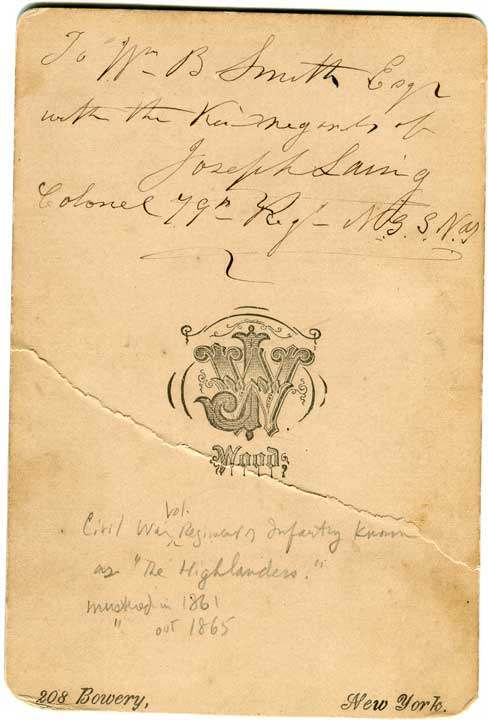 To Wm B Smith Esqr
with the Kind regards of
Joseph Laing
Colonel 79th Regt N.G.S.N.Y.
JW
Wood,
Civil War Vol. Regiment of Infantry known
as "The Highlanders."
mustered in 1861
" out 1865
208 Bowery, New York.